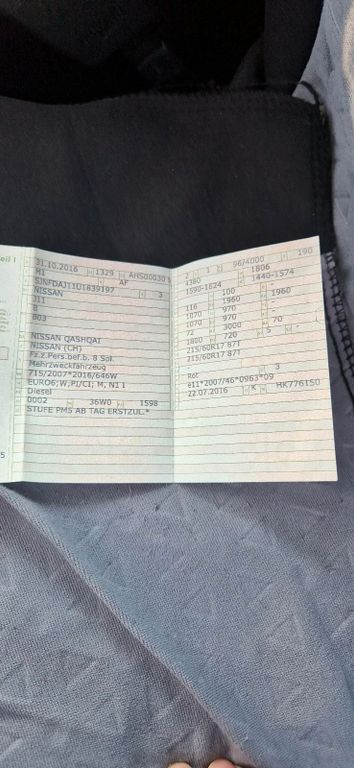 eil I
31.10.2016 1329 AHS00030
M1 AF
SJNFDAJ11U1839197 3
NISSAN
J11
B
B03
NISSAN QASHQAI
NISSAN (CH)
Fz.z.Pers.bef.b. 8 Spl.
Mehrzweckfahrzeug
715/2007*2016/646W
EURO6;W;PI/CI; M, N1 I
Diesel
0002 36W0 1598
STUFE PM5 AB TAG ERSTZUL.*
2 1 96/4000 190
4380 1806
1590-1624 1440-1574
- 100 -
116 1960 1960
1070 970 -
1070 970 -
72 3000 70
1800 720 5 -
215/60R17 87T
215/60R17 87T
Rot 3
e11*2007/46*0963*09
22.07.2016 K HK776150
5